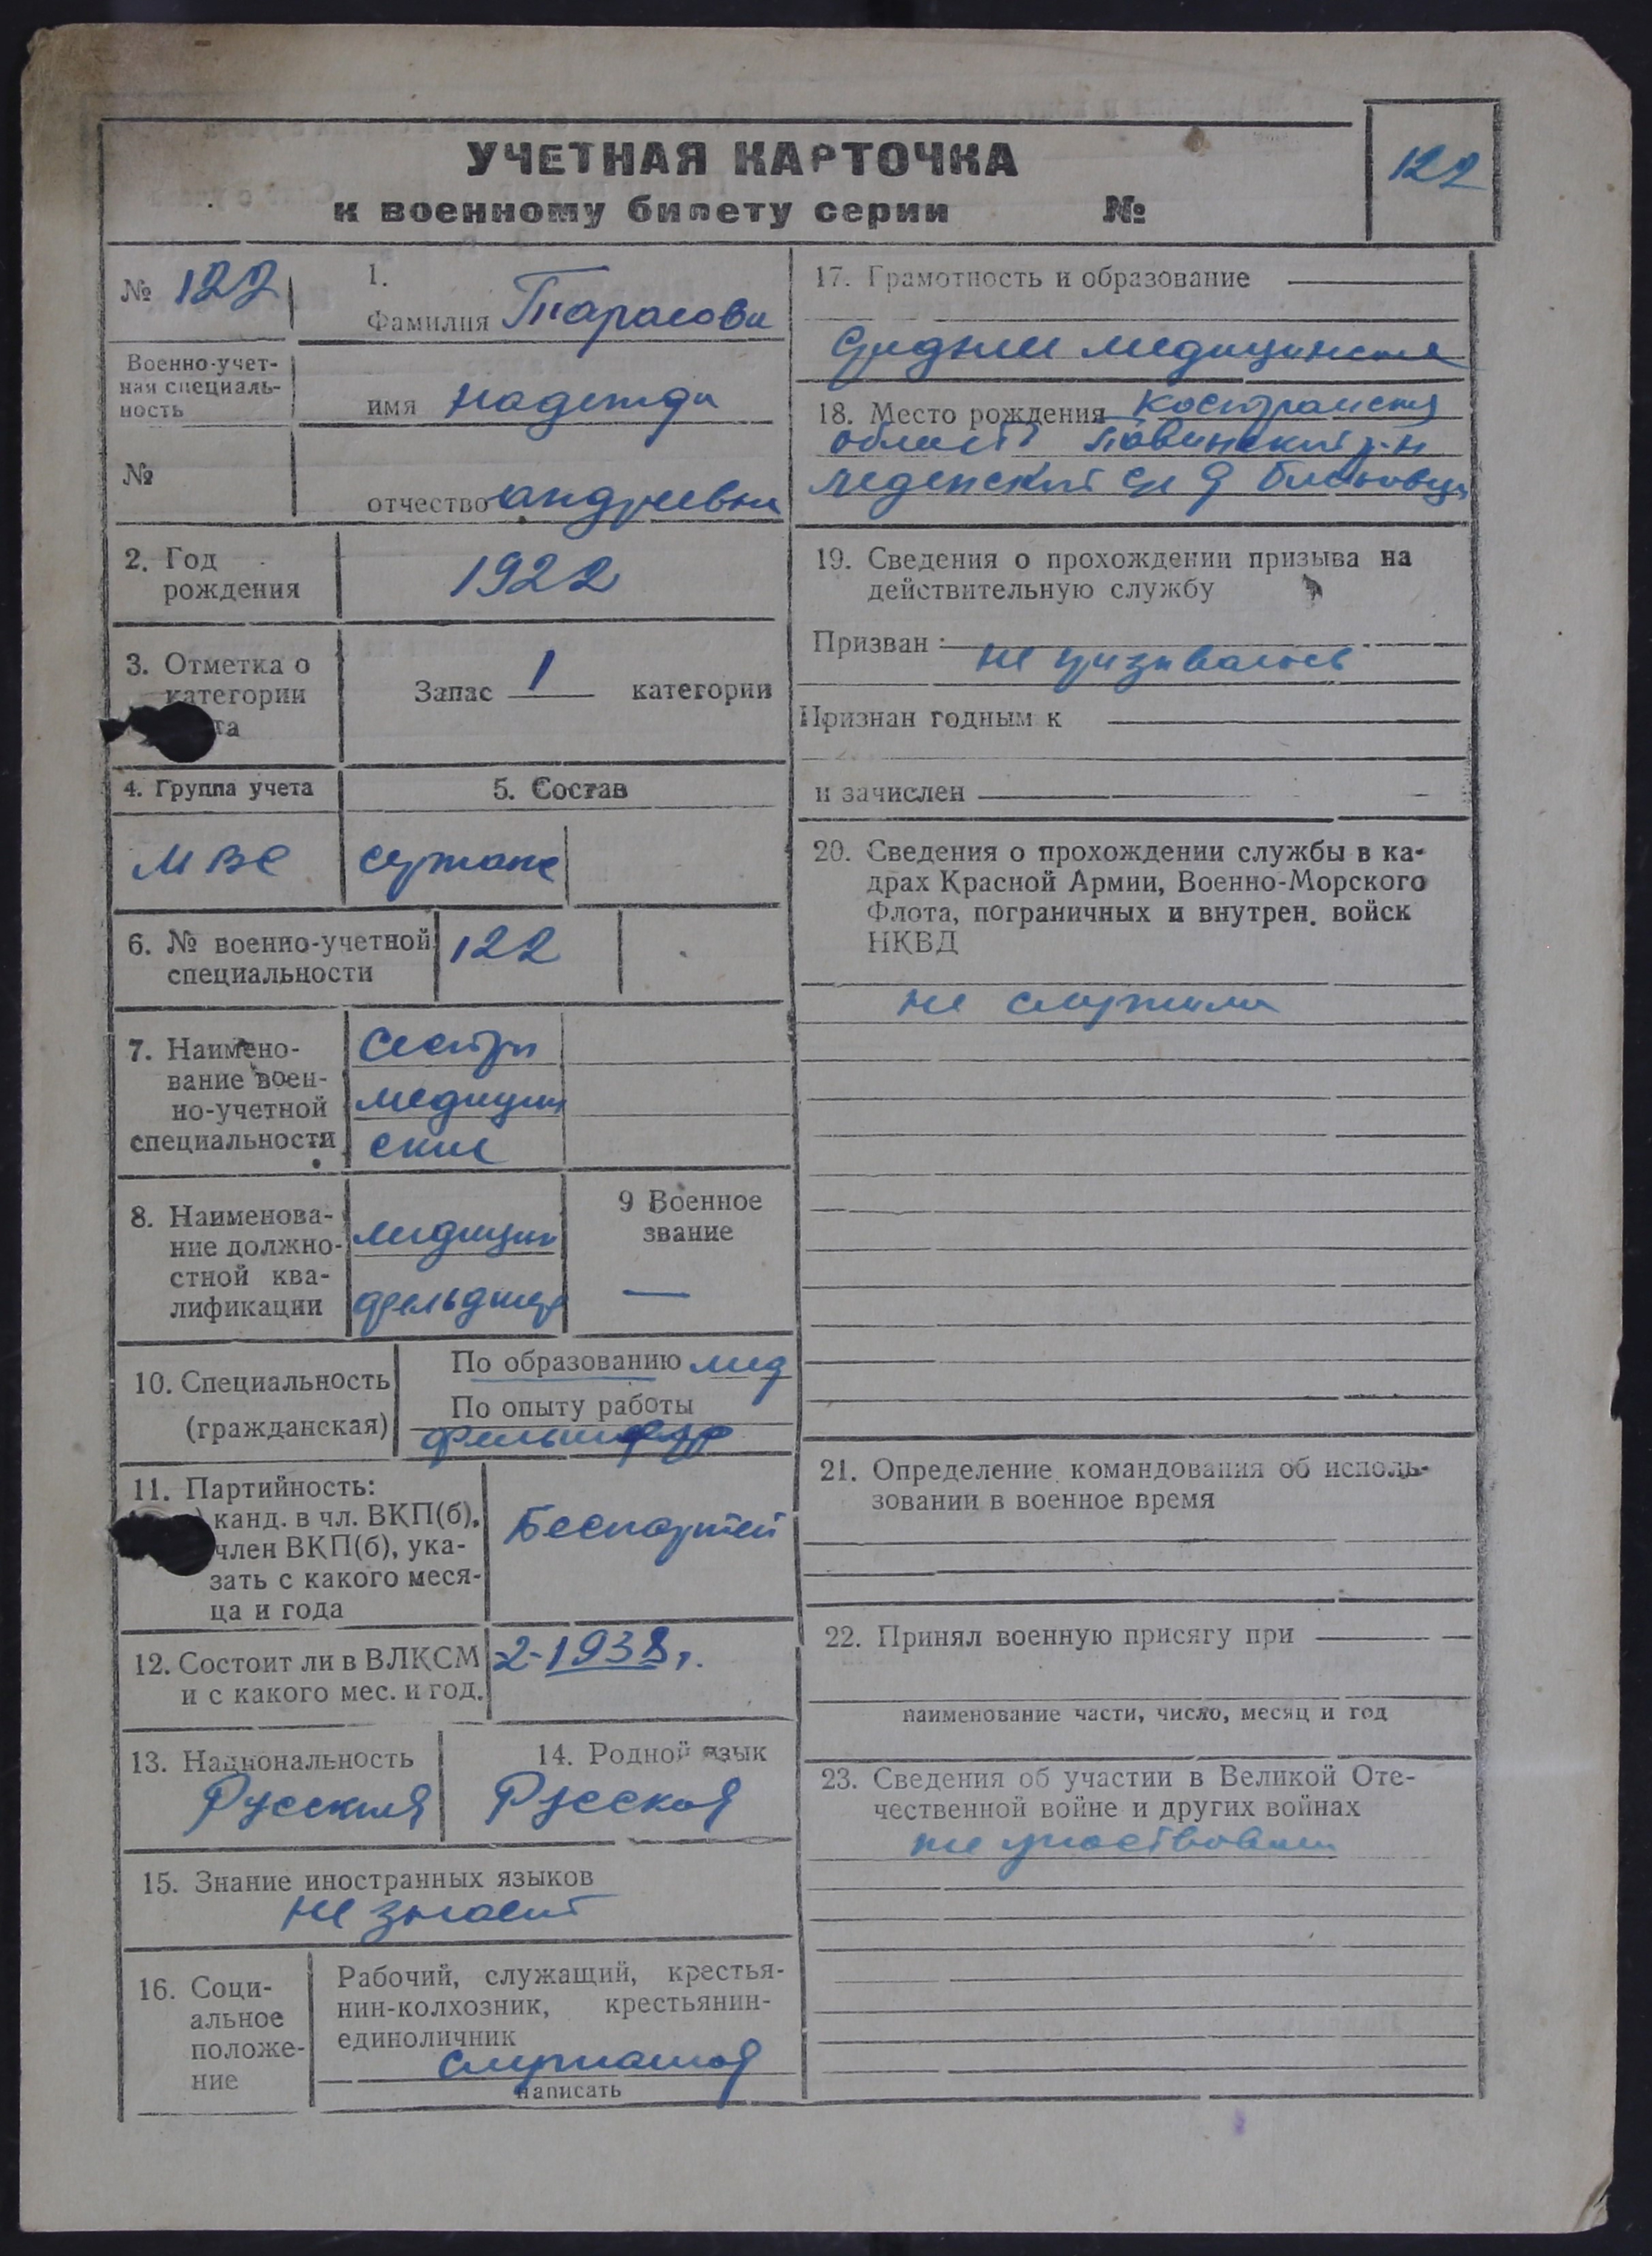 УЧЕТНАЯ КАРТОЧКА
к военному билету серии №
122
№ 122
1.
Фамилия Тарасова
Военно-учет-
ная специаль-
ность
имя Надежда
№
отчество Андреевна
2. Год
рождения
1922
3. Отметка о
категории
та
Запас 1 категории
4. Группа учета
5. Состав
МВС
6. № военно-учетной
специальности
122
7. Наимено-
вание воен-
но-учетной
специальности
Сестра
медицин
ская
8. Наименова-
ние должно-
стной ква-
лификации
медицин
фельдшер
9 Военное
звание
—
10. Специальность
(гражданская)
По образованию мед
По опыту работы
фельдшер
11. Партийность:
канд. в чл. ВКП(б),
член ВКП(б), ука-
зать с какого меся-
ца и года
Беспартей
12. Состоит ли в ВЛКСМ
и с какого мес. и год.
-2-1938г.
13. Национальность
Русская
14. Родной язык
Русской
15. Знание иностранных языков
не знает
16. Соци-
альное
положе-
ние
Рабочий, служащий, крестья-
нин-колхозник, крестьянин-
единоличник
служащая
написать
17. Грамотность и образование
Среднее медицинское
18. Место рождения Костромская
область Павинский р-н
Леденский с/с д
19. Сведения о прохождении призыва на
действительную службу
Призван:
не призывалась
Признан годным к
и зачислен
20. Сведения о прохождении службы в ка-
драх Красной Армии, Военно-Морского
Флота, пограничных и внутрен. войск
НКВД
не служила
21. Определение командования об исполь-
зовании в военное время
22. Принял военную присягу при
наименование части, число, месяц и год
23. Сведения об участии в Великой Оте-
чественной войне и других войнах
не участвовала